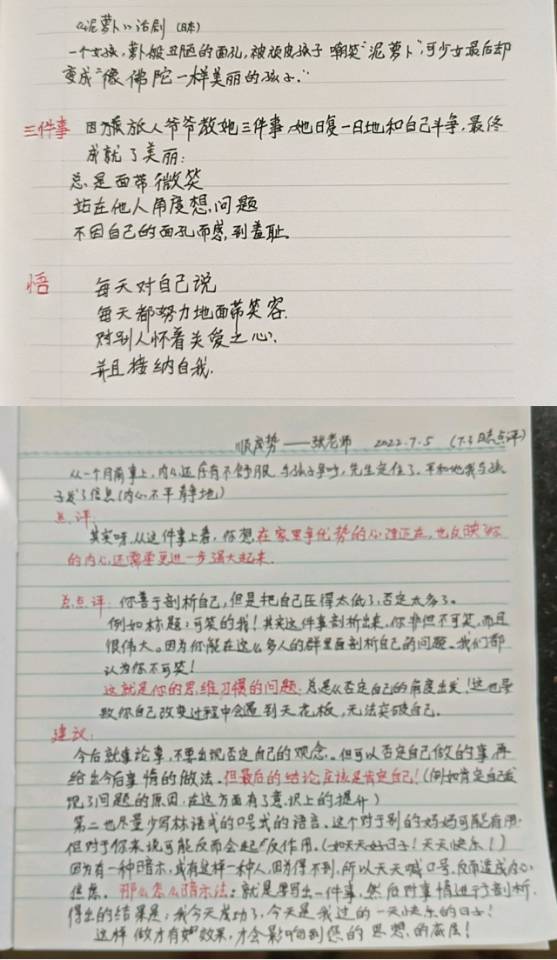 《泥萝卜》话剧 (日本)
一个女孩,萝卜般丑陋的面孔,被顽皮孩子嘲笑"泥萝卜",可少女最后却
变成"像佛陀一样美丽的孩子."
三件事 因为旅人爷爷教她三件事,她日复一日地和自己斗争,最终
成就了美丽:
总是面带微笑
站在他人角度想问题
不因自己的面孔而感到羞耻
悟 每天对自己说
每天都努力地面带笑容.
对别人怀着关爱之心,
并且接纳自我.
顺成势——张老师 2022.7.5 (7.3日点评)
从一个月前事上,内心还存有不舒服
子发了信息(内心不平静地)
点评:
其实呀,从这件事上看,你想在家里争优势的心理还在,也反映你
的内心还需要更进一步强大起来.
总点评:你善于剖析自己,但是把自己压得太低了,否定太多了.
例如标题:可笑的我!其实这件事剖析出来,你非但不可笑,而且
很伟大。因为你能在这么多人的群里面剖析自己的问题。我们都
认为你不可笑!
这就是你的思维习惯的问题:总是从否定自己的角度出发!这也导
致你自己改变过程中会遇到天花板,无法突破自己.
建议:
今后就事论事,不要出现否定自己的观念。但可以否定自己做的事,再
给出今后事情的做法。但最后的结论应该是肯定自己!(例如肯定自己发
现了问题的原因,在这方面有了意识上的提升)
第二也尽量少写标语式的口号式的语言。这个对于别的妈妈可能有用.
但对于你来说可能反而会起反作用。(如天天好日子!天天快乐!)
因为有一种暗示,或有这样一种人,因为得不到,所以天天喊口号,反而造成内心
焦虑。那么怎么暗示法:就是要写出一件事,然后对事情进行剖析.
得出的结果是:我今天成功了,今天是我过的一天快乐的日子!
这样做才有好效果,才会影响到您的思想的底层!